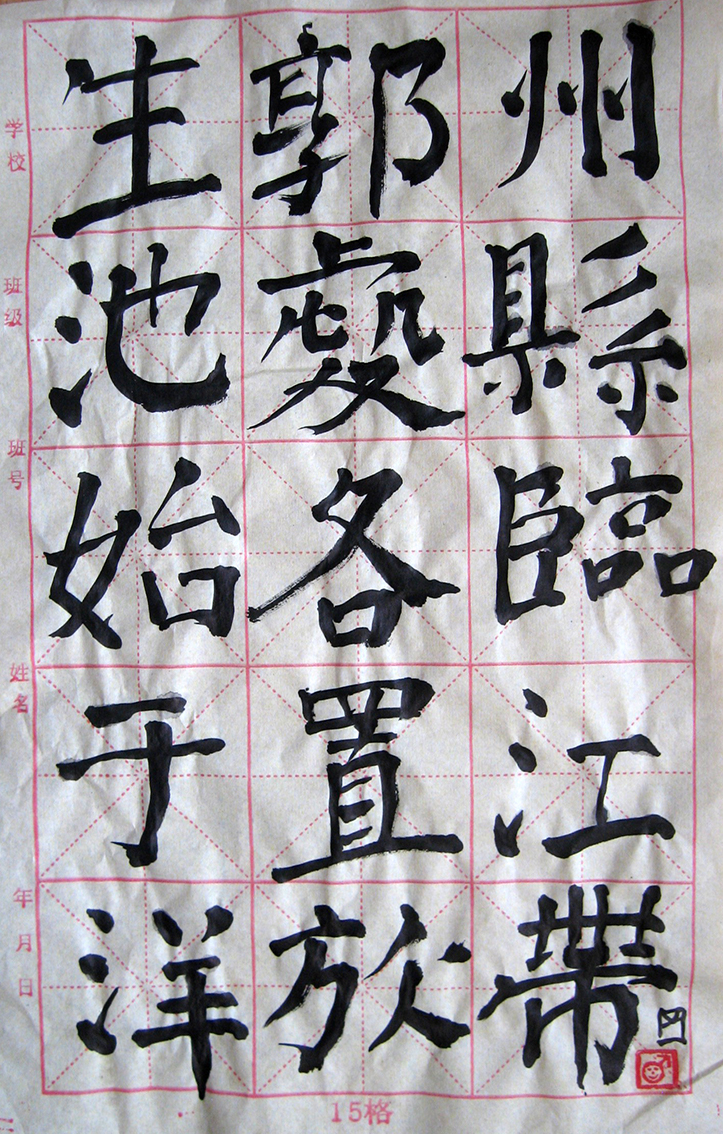 州縣臨江帶
郭處各置放
生池始于洋
学校
班级
班号
姓名
年月日
15格